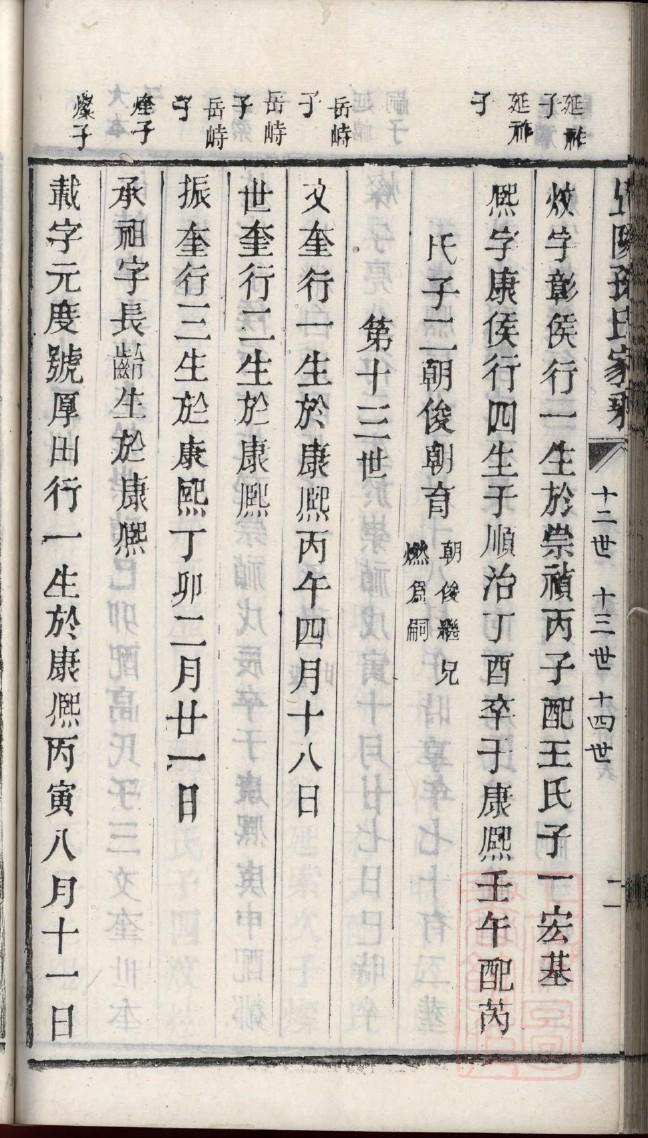 孫氏家乘
十二世 十三世 十四世
二
延祚子
炆字彰侯行一生於崇禎丙子配王氏子一宏基
延祚子
熈字康侯行四生于順治丁酉卒于康熈壬午配芮
氏子二朝俊朝育 朝俊繼兄燃爲嗣
第十三世
岳峙子
文奎行一生於康熈丙午四月十八日
岳峙子
世奎行二生於康熈
岳峙子
振奎行三生於康熙丁卯二月廿一日
烽子
承祖字長齡生於康熈
燦子
載字元度號厚田行一生於康熈丙寅八月十一日